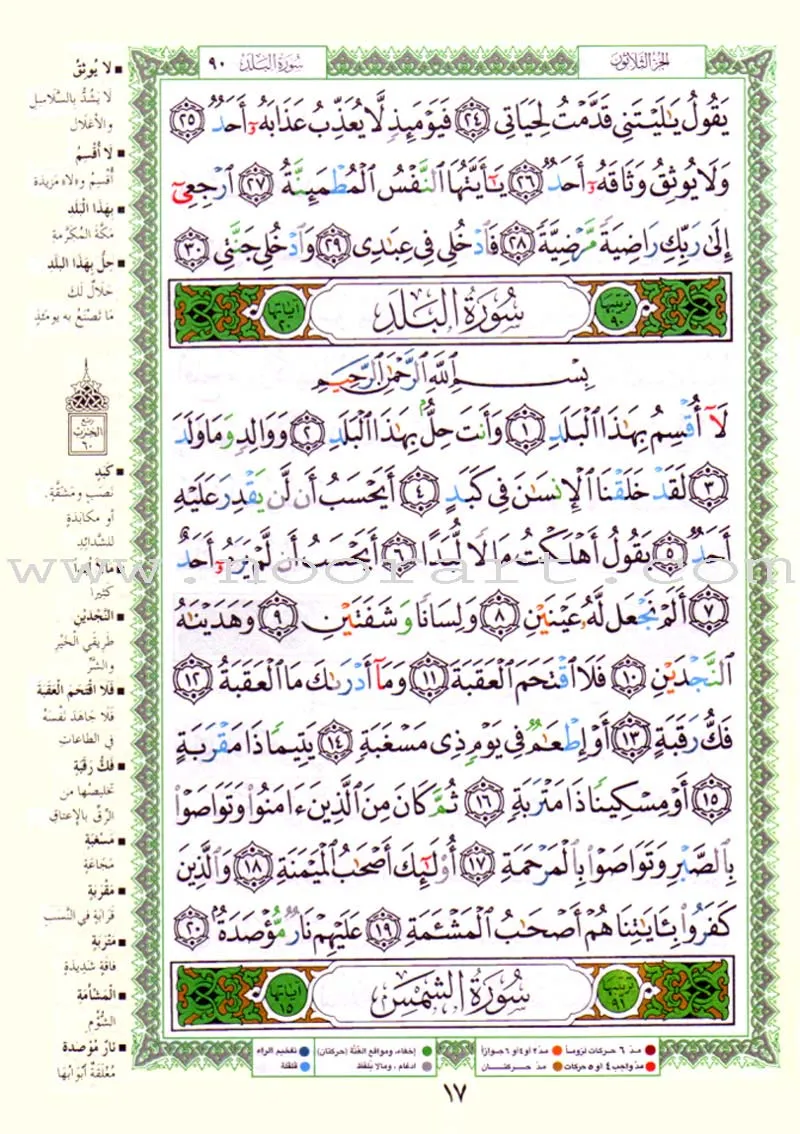 الجزء الثلاثون
سورة البلد ٩٠
يَقُولُ يَٰلَيْتَنِى قَدَّمْتُ لِحَيَاتِى ٢٤ فَيَوْمَئِذٍ لَّا يُعَذِّبُ عَذَابَهُۥٓ أَحَدٌ ٢٥
وَلَا يُوثِقُ وَثَاقَهُۥٓ أَحَدٌ ٢٦ يَٰٓأَيَّتُهَا ٱلنَّفْسُ ٱلْمُطْمَئِنَّةُ ٢٧ ٱرْجِعِىٓ
إِلَىٰ رَبِّكِ رَاضِيَةً مَّرْضِيَّةً ٢٨ فَٱدْخُلِى فِى عِبَٰدِى ٢٩ وَٱدْخُلِى جَنَّتِى ٣٠
ترتيبها ٩٠ سُورَةُ البَلَدِ آياتها ٢٠
بِسْمِ ٱللَّهِ ٱلرَّحْمَٰنِ ٱلرَّحِيمِ
لَآ أُقْسِمُ بِهَٰذَا ٱلْبَلَدِ ١ وَأَنتَ حِلٌّۢ بِهَٰذَا ٱلْبَلَدِ ٢ وَوَالِدٍ وَمَا وَلَدَ
٣ لَقَدْ خَلَقْنَا ٱلْإِنسَٰنَ فِى كَبَدٍ ٤ أَيَحْسَبُ أَن لَّن يَقْدِرَ عَلَيْهِ
أَحَدٌ ٥ يَقُولُ أَهْلَكْتُ مَالًا لُّبَدًا ٦ أَيَحْسَبُ أَن لَّمْ يَرَهُۥٓ أَحَدٌ
٧ أَلَمْ نَجْعَل لَّهُۥ عَيْنَيْنِ ٨ وَلِسَانًا وَشَفَتَيْنِ ٩ وَهَدَيْنَٰهُ
ٱلنَّجْدَيْنِ ١٠ فَلَا ٱقْتَحَمَ ٱلْعَقَبَةَ ١١ وَمَآ أَدْرَىٰكَ مَا ٱلْعَقَبَةُ ١٢
فَكُّ رَقَبَةٍ ١٣ أَوْ إِطْعَٰمٌ فِى يَوْمٍ ذِى مَسْغَبَةٍ ١٤ يَتِيمًا ذَا مَقْرَبَةٍ
١٥ أَوْ مِسْكِينًا ذَا مَتْرَبَةٍ ١٦ ثُمَّ كَانَ مِنَ ٱلَّذِينَ ءَامَنُوا۟ وَتَوَاصَوْا۟
بِٱلصَّبْرِ وَتَوَاصَوْا۟ بِٱلْمَرْحَمَةِ ١٧ أُو۟لَٰٓئِكَ أَصْحَٰبُ ٱلْمَيْمَنَةِ ١٨ وَٱلَّذِينَ
كَفَرُوا۟ بِـَٔايَٰتِنَا هُمْ أَصْحَٰبُ ٱلْمَشْـَٔمَةِ ١٩ عَلَيْهِمْ نَارٌ مُّؤْصَدَةٌۢ ٢٠
ترتيبها ٩١ سُورَةُ الشَّمْسِ آياتها ١٥
لا يُوثِقُ
لَا يَشُدُّ بالسَّلاسِلِ
والأغْلَالِ
لَا أُقْسِمُ
أُقْسِمُ ولا مَزِيدَة
بِهَذَا الْبَلَدِ
مَكَّةَ المُكَرَّمَةِ
حِلٌّ بِهَذَا البَلَدِ
حَلَالٌ لَكَ
مَا تَصْنَعُ به يومَئِذٍ
ربع
الحزب
٦٠
كَبَدٍ
نَصَبٍ ومَشَقَّةٍ
أو مكابَدَةٍ
للشَّدَائِدِ
مَالاً لُبَدا
كثيرا
النَّجْدَيْنِ
طَرِيقَي الْخَيْرِ
والشَّرِّ
فَلَا اقْتَحَمَ الْعَقَبَةَ
فَلَا جَاهَدَ نَفْسَهُ
في الطاعاتِ
فَكُّ رَقَبَةٍ
تخليصُها من
الرِّقِّ بالإعتاقِ
مَسْغَبَةٍ
مَجَاعَةٍ
مَقْرَبَةٍ
قَرَابَةٍ في النَّسَبِ
مَتْرَبَةٍ
فاقَةٍ شَدِيدَةٍ
الْمَشْأَمَةِ
الشُّؤْمِ
نَارٌ مُؤْصَدة
مُغْلَقَةٌ أَبْوَابُهَا
مدّ ٦ حركات لزوماً
مدّ ٢ أو ٤ أو ٦ جوازاً
إخفاء، ومواقع الغُنَّة (حركتان)
تفخيم الراء
مدّ واجب ٤ أو ٥ حركات
مدّ حركتان
ادغام، وما لا يُلفَظ
قلقلة
١٧
www.noorart.com